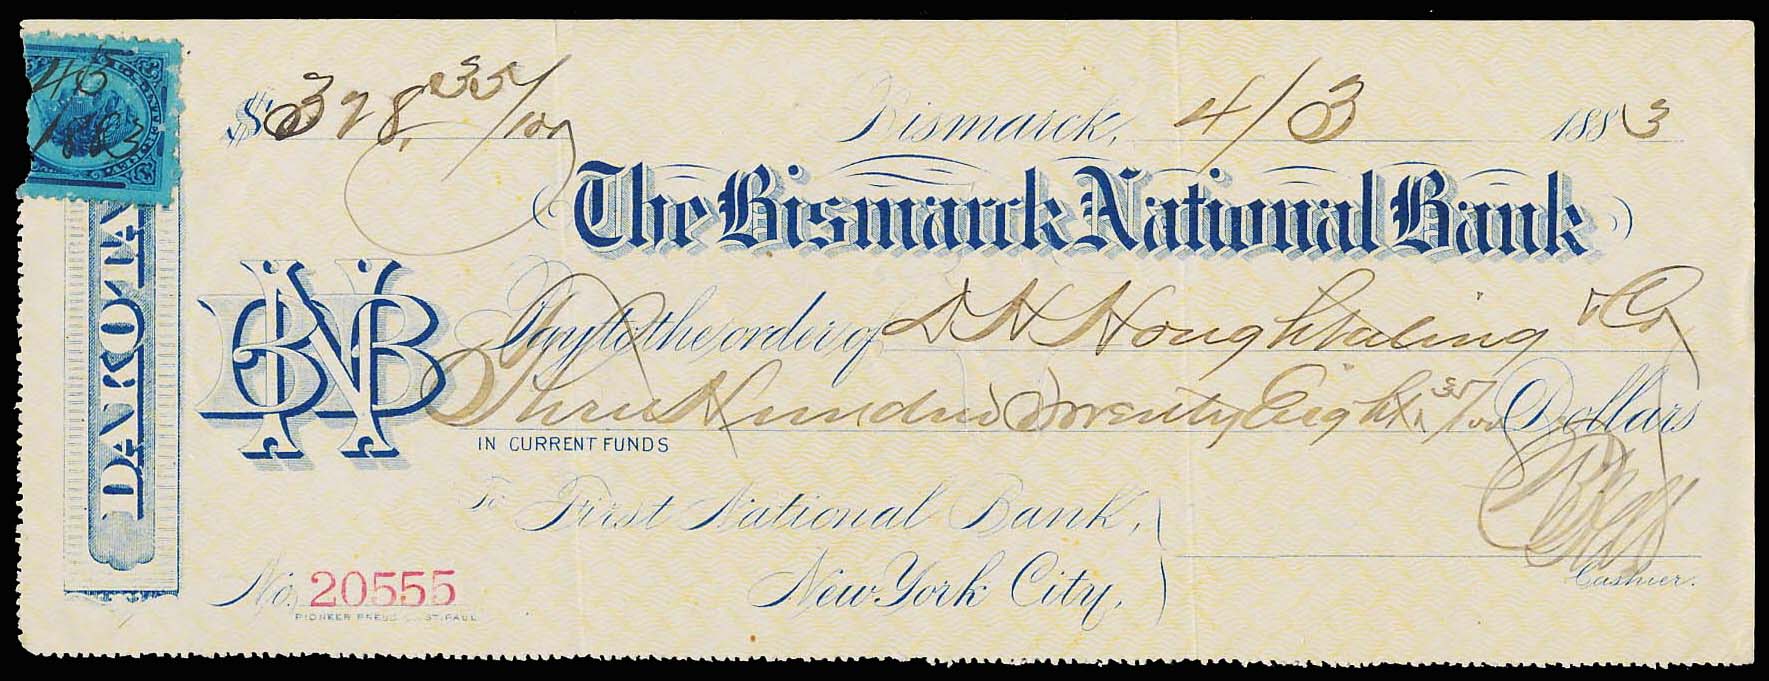 1883
$328.35/100
Bismarck, 4/3 1883
The Bismarck National Bank
DAKOTA
BNB
Pay to the order of D H Houghtaling & Co
Three Hundred Twenty Eight 35/100 Dollars
IN CURRENT FUNDS
To First National Bank,
New York City,
Cashier.
No. 20555
PIONEER PRESS CO. ST. PAUL